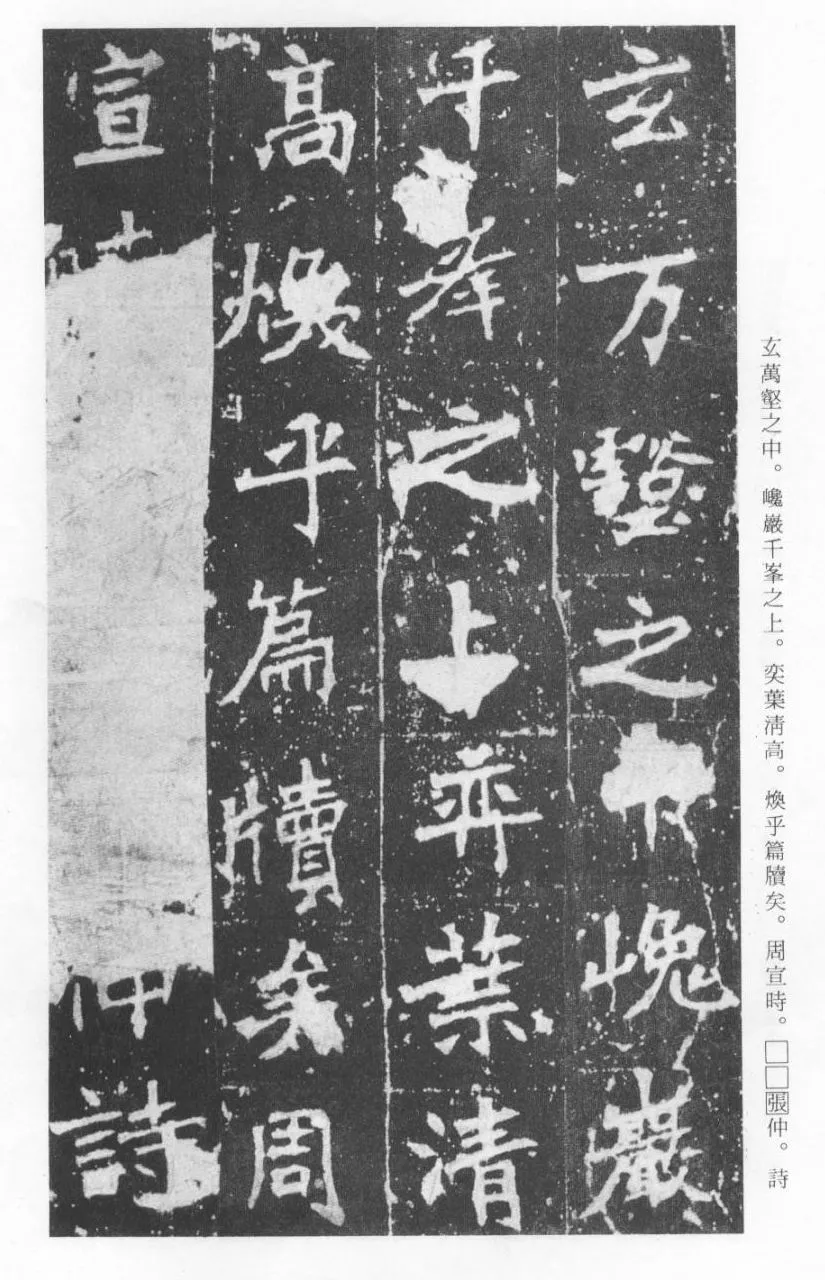 玄万壑之中巉巖
千峯之上弈葉清
高煥乎篇牘矣周
宣時仲詩
玄萬壑之中。巉巖千峯之上。奕葉淸高。煥乎篇牘矣。周宣時。□□張仲。詩